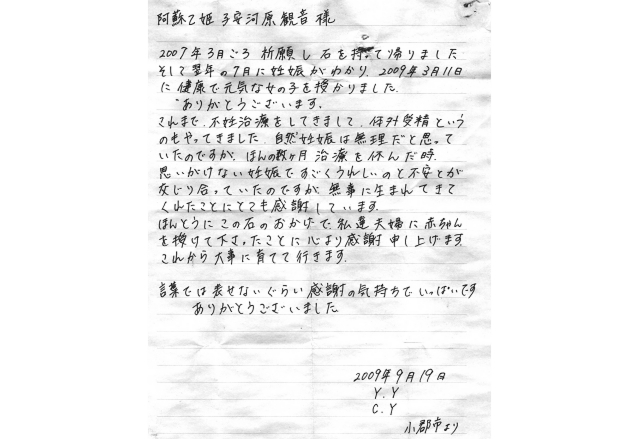 阿蘇乙姫 子安河原観音 様
2007年3月ごろ 祈願し 石を持って帰りました
そして翌年の7月に妊娠がわかり、2009年3月11日
に健康で元気な女の子を授かりました。
ありがとうございます。
これまで、不妊治療をしてきまして、体外受精という
のもやってきました。自然妊娠は無理だと思って
いたのですが、ほんの数ヶ月 治療を休んだ時、
思いがけない妊娠ですごくうれしいのと不安とが
交じり合っていたのですが、無事に生まれてきて
くれたことにとても感謝しています。
ほんとうにこの石のおかげで、私達夫婦に赤ちゃん
を授けて下さったことに心より感謝申し上げます。
これから大事に育てて行きます。
言葉では表せないぐらい感謝の気持ちでいっぱいです
ありがとうございました
2009年9月19日
Y.Y
C.Y
小郡市より